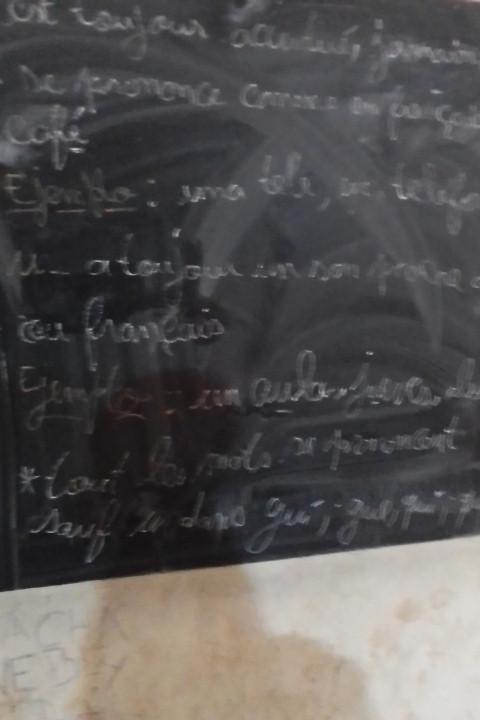 est toujours accentué, jamais
se prononce comme en françai
café
Ejemplo : una tele, un telefo
u a toujour un son proche
ou français
Ejemplo : un aula, jueves,
* tout les mots se prononcent
sauf dans gui, gue, qui,
ACHA